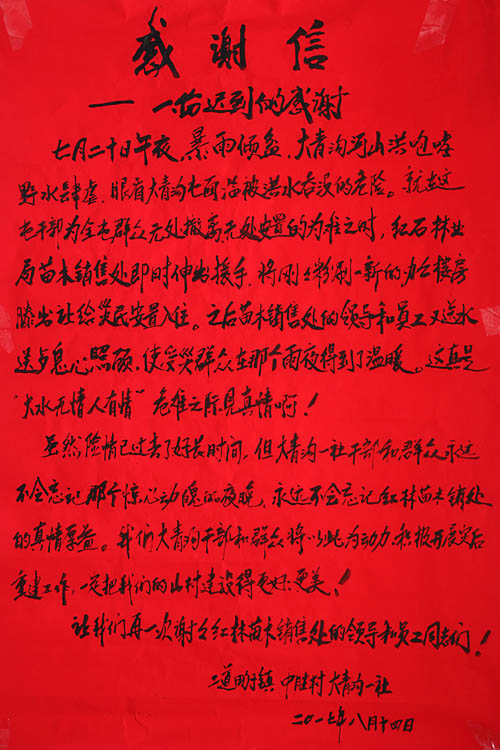 感谢信
—— 一份迟到的感谢
七月二十日午夜，暴雨倾盆，大青沟河山洪咆哮
野水肆虐，眼看大青沟屯面临被洪水吞没的危险。就在这
屯干部为全屯群众无处撤离无处安置的为难之时，红石林业
局苗木销售处即时伸出援手，将刚刚粉刷一新的办公楼房
腾出让给灾民安置入住。之后苗木销售处的领导和员工又送水
送步息心照顾，使受灾群众在那个雨夜得到了温暖。这真是
"大水无情人有情"危难之际见真情啊！
虽然险情已过去了好长时间，但大青沟一社干部和群众永远
不会忘记那个惊心动魄的夜晚，永远不会忘记红林苗木销处
的真情厚益。我们大青沟干部和群众将以此为动力，积极开展灾后
重建工作，一定把我们的山村建设得更好更美！
让我们再一次谢谢红林苗木销售处的领导和员工同志们！
二道甸子镇 中胜村大青沟一社
二〇一七年八月十四日